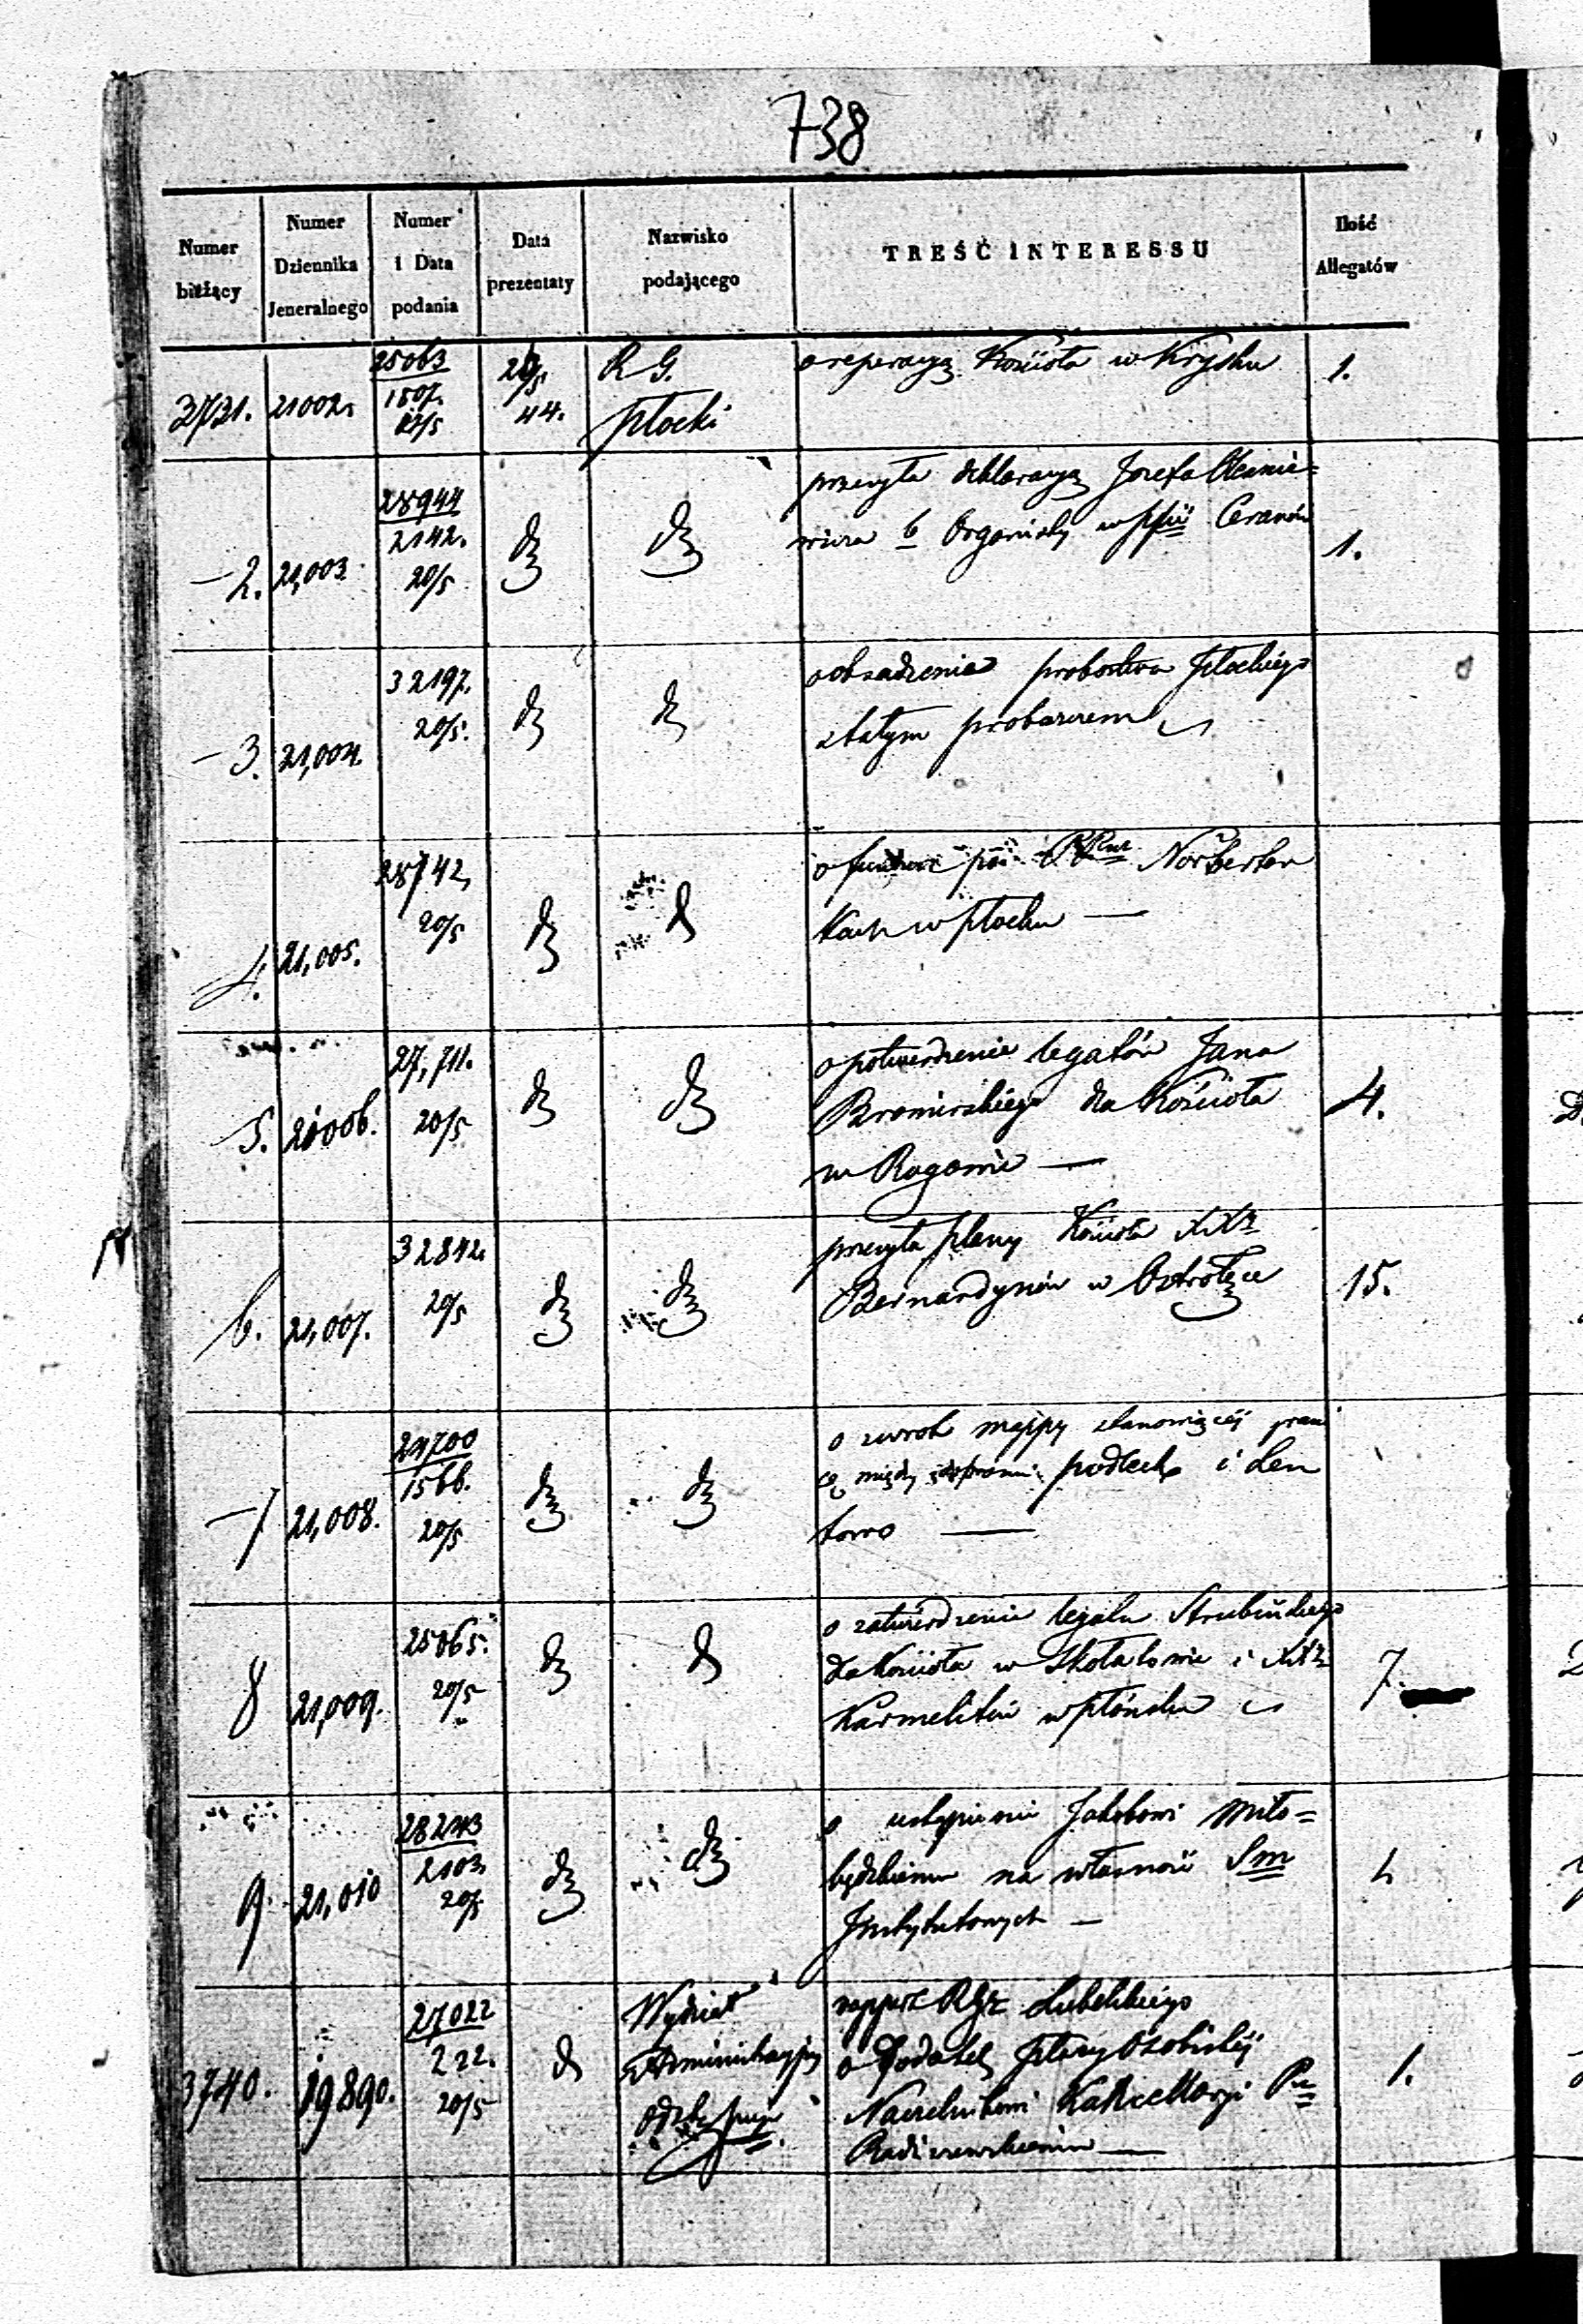 738
Numer bieżący
Numer Dziennika Jeneralnego
Numer i Data podania
Data prezentaty
Nazwisko podającego
TREŚĆ INTERESSU
Ilość Allegatów
3731. 21002. 25063 1507. 20/5 44. R. G. Płocki
o reperacyą Kościoła w Krysku 1.
2. 21,003 28944 2142. 20/5 dto dto
przesyła deklaracyą Józefa
wicza b Organisty w 1.
3. 21,004. 32197. 20/5. dto dto
o obsadzenie probostwa Płockiego
stałym proboszczem
4. 21,005. 28742, 20/5 dto dto
o po Norbertan
kach w Płocku —
5. 21006. 27,711. 20/5 dto dto
o potwierdzenie legatów Jana
Bromirskiego dla Kościoła
w Rogowie — 4.
6. 21,007. 32842. 20/5 dto dto
przesyła plany Kościoła XXy
Bernardynów w Ostrołęce 15.
7 21,008. 24700 1566. 20/5 dto dto
o zwrot mappy stanowiącéj grani
cę między dobrami podlecka i Len
towo —
8 21,009. 25065. 20/5 dto dto
o zatwierdzenie legatu Strubińskiego
dla Kościoła w Skołatowie i XXy
Karmelitów w Płońsku 7.
9. 21,010 28243 2103. 20/5 dto dto
o ustąpienie Jakóbowi Miło=
będzkiemu na własność Sm
Instytutowych —
3740. 19890. 27022 222. 20/5 dto
Wydział
Administracyjny
odstępuje
rapport RGu Lubelskiego
o dodatek płacy osobistéj
Naczelnikowi Kancellaryi Pu
Radiszewskiemu — 1.